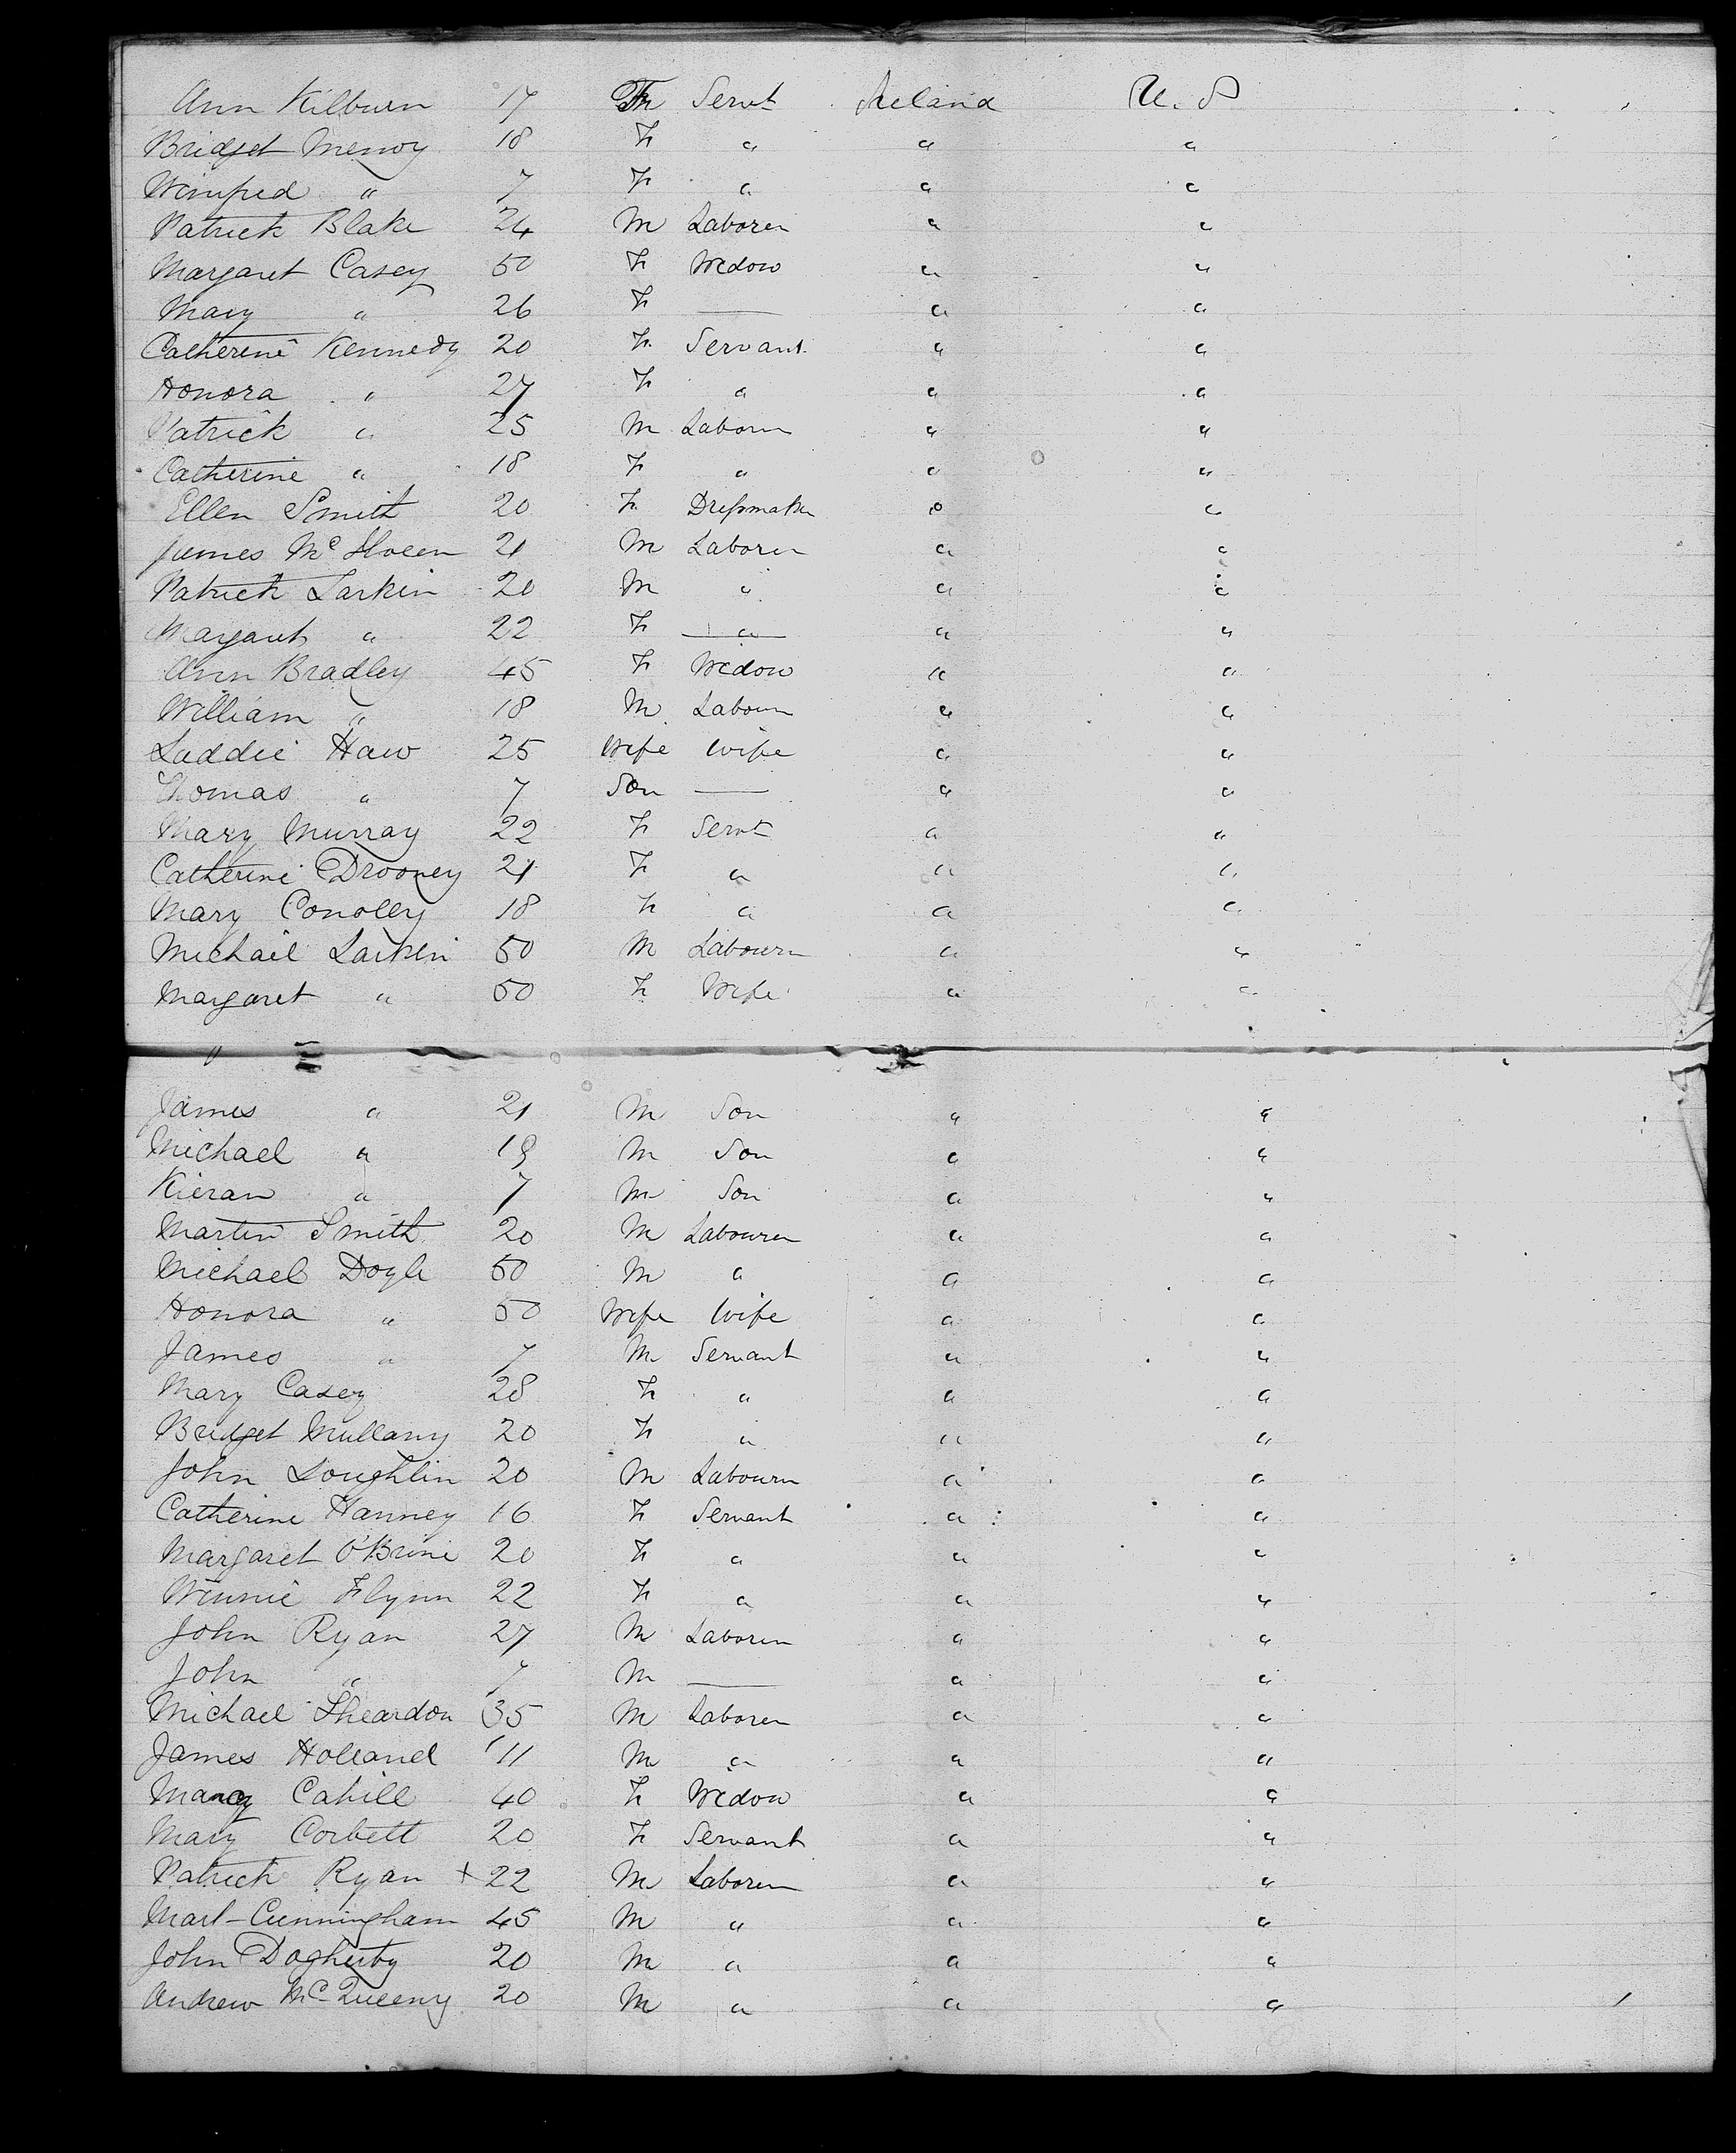 Ann Kilburn 17 Fm Servt Ireland U. S
Bridget Menvoy 18 F " " "
Winifred " 7 F " " "
Patrick Blake 24 M Laborer " "
Margaret Casey 50 F Widow " "
Mary " 26 F — " "
Catherine Kennedy 20 F Servant " "
Honora " 27 F " " "
Patrick " 25 M Laborer " "
Catherine " 18 F " " "
Ellen Smith 20 F Dressmaker " "
James Mc 21 M Laborer " "
Patrick Larkin 20 M " " "
Margaret " 22 F " " "
Ann Bradley 45 F Widow " "
William " 18 M Labourer " "
Laddie Haw 25 Wife Wife " "
Thomas " 7 Son — " "
Mary Murray 22 F Servt " "
Catherine Drooney 21 F " " "
Mary Conolly 18 F " " "
Michael Larkin 50 M Labourer " "
Margaret " 50 F Wife " "
James " 21 M Son " "
Michael " 19 M Son " "
Kieran " 7 M Son " "
Martin Smith 20 M Labourer " "
Michael Doyle 50 M " " "
Honora " 50 Wife Wife " "
James " 7 M Servant " "
Mary Casey 28 F " " "
Bridget Mullany 20 F " " "
John Loughlin 20 M Labourer " "
Catherine Hanney 16 F Servant " "
Margaret O'Brine 20 F " " "
Winnie Flynn 22 F " " "
John Ryan 27 M Laborer " "
John " 7 M — " "
Michael Sheardon 35 M Laborer " "
James Holland 11 M " " "
Mary Cahill 40 F Widow " "
Mary Corbett 20 F Servant " "
Patrick Ryan + 22 M Laborer " "
Mart- Cunningham 45 M " " "
John Dogherty 20 M " " "
Andrew Mc Queeny 20 M " " "